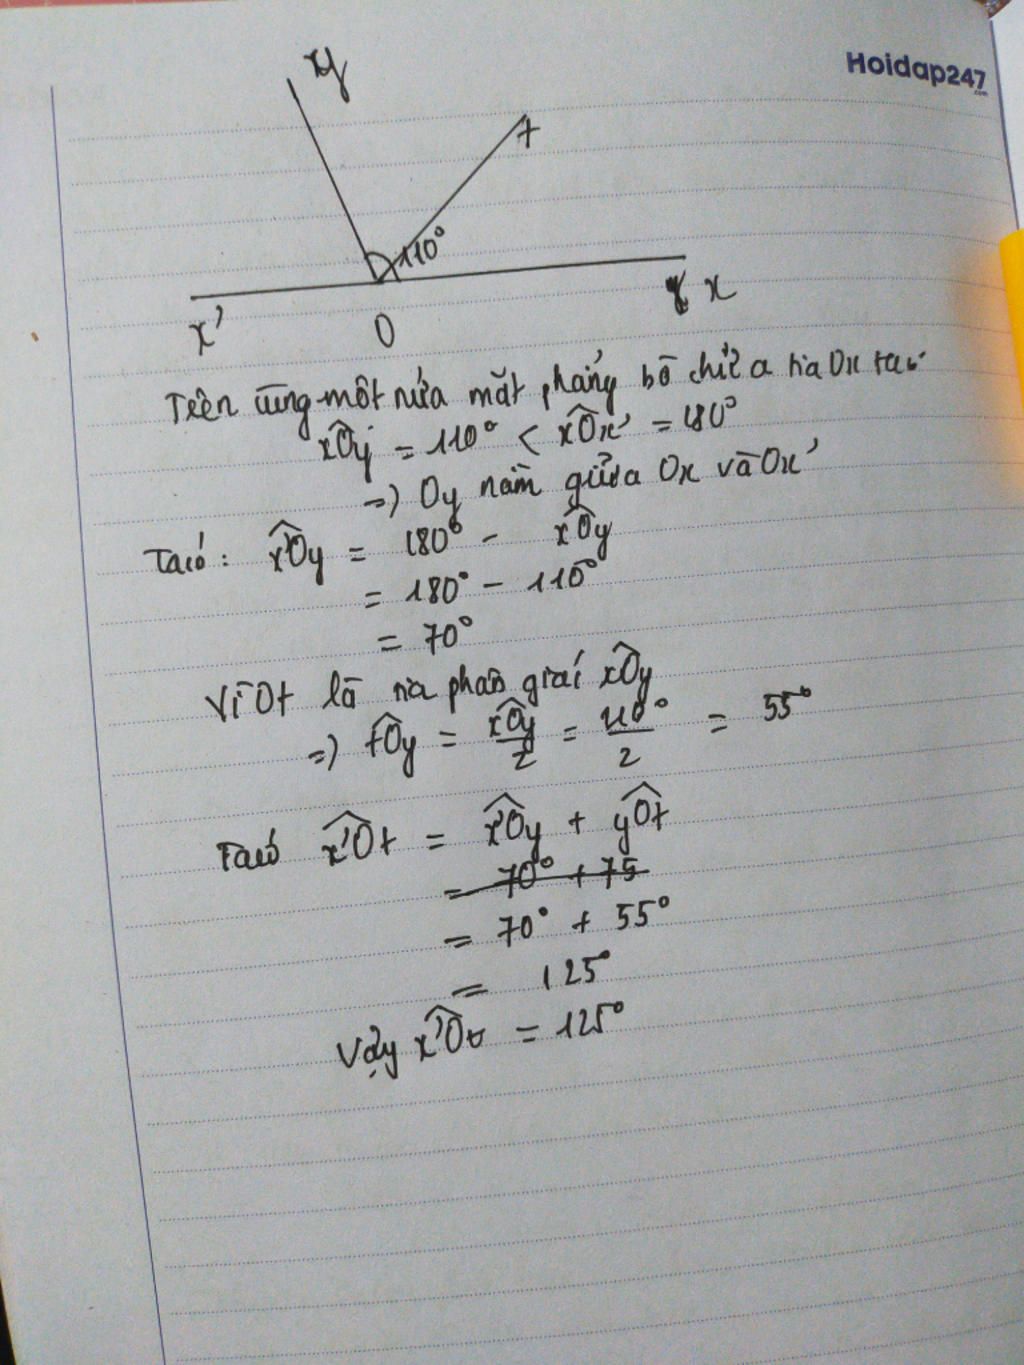 Hoidap247
.com
y
t
110°
x'
O
x
Trên cùng một nửa mặt phẳng bờ chứa tia Ox ta có
xÔy = 110° < xÔx' = 180°
=) Oy nằm giữa Ox và Ox'
Ta có: x'Ôy = 180° - xÔy
= 180° - 110°
= 70°
Vì Ot là tia phân giác xÔy
=) tÔy = xÔy/2 = 110°/2 = 55°
Ta có x'Ôt = x'Ôy + yÔt
= 70° + 75
= 70° + 55°
= 125°
Vậy x'Ôt = 125°